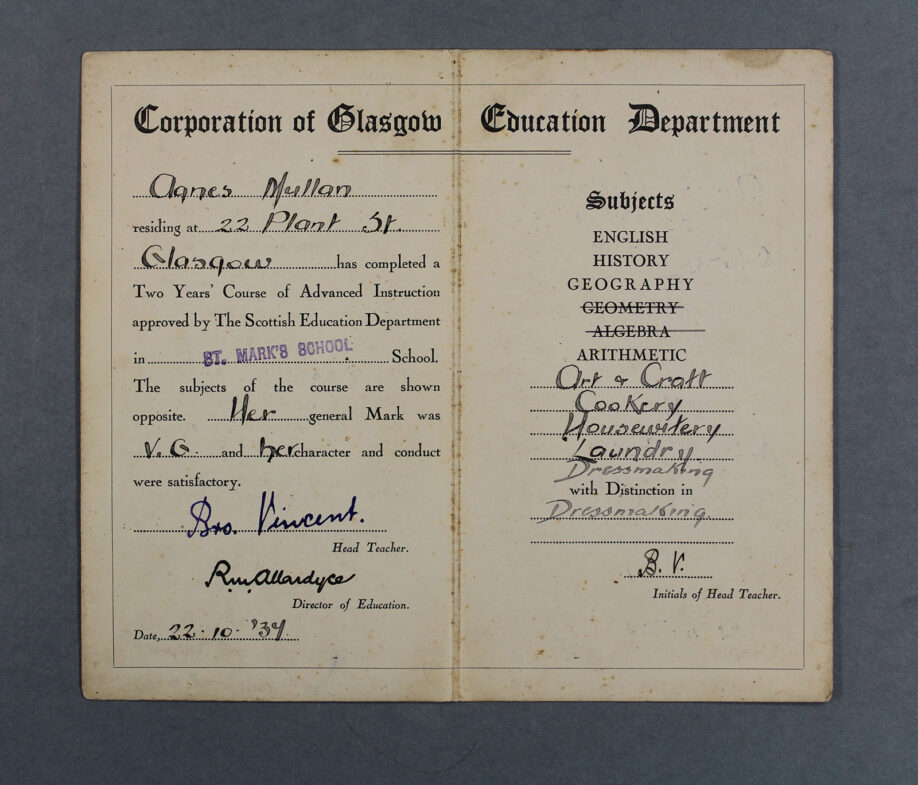 Corporation of Glasgow
Agnes Mullan
residing at 22 Plant St.
Glasgow has completed a
Two Years' Course of Advanced Instruction
approved by The Scottish Education Department
in ST. MARK'S SCHOOL School.
The subjects of the course are shown
opposite. Her general Mark was
V. G. and her character and conduct
were satisfactory.
Bro. Vincent.
Head Teacher.
R. M. Allardyce
Director of Education.
Date, 22·10·'37
Education Department
Subjects
ENGLISH
HISTORY
GEOGRAPHY
GEOMETRY
ALGEBRA
ARITHMETIC
Art & Craft
Cookery
Housewifery
Laundry
Dressmaking
with Distinction in
Dressmaking
B. V.
Initials of Head Teacher.